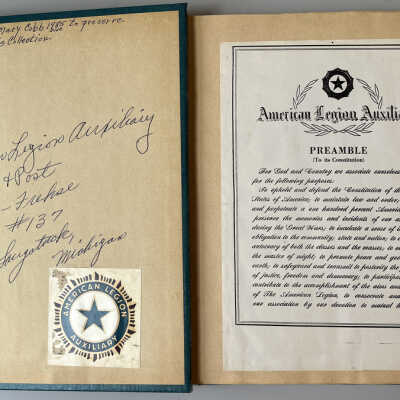 Mary Cobb 1985 to preserve
Collection
Legion Auxiliary
& Post
Frehse
#137
Michigan
AMERICAN LEGION
AUXILIARY
American Legion Auxilia
PREAMBLE
(To its Constitution)
For God and Country we associate ourselve
for the following purposes:
To uphold and defend the Constitution of th
States of America; to maintain law and order;
and perpetuate a one hundred percent America
preserve the memories and incidents of our as
during the Great Wars; to inculcate a sense of i
obligation to the community, state and nation; to c
autocracy of both the classes and the masses; to m
the master of might; to promote peace and go
earth; to safeguard and transmit to posterity the
of justice, freedom and democracy; to participat
contribute to the accomplishment of the aims and
of The American Legion; to consecrate and
our association by our devotion to mutual h